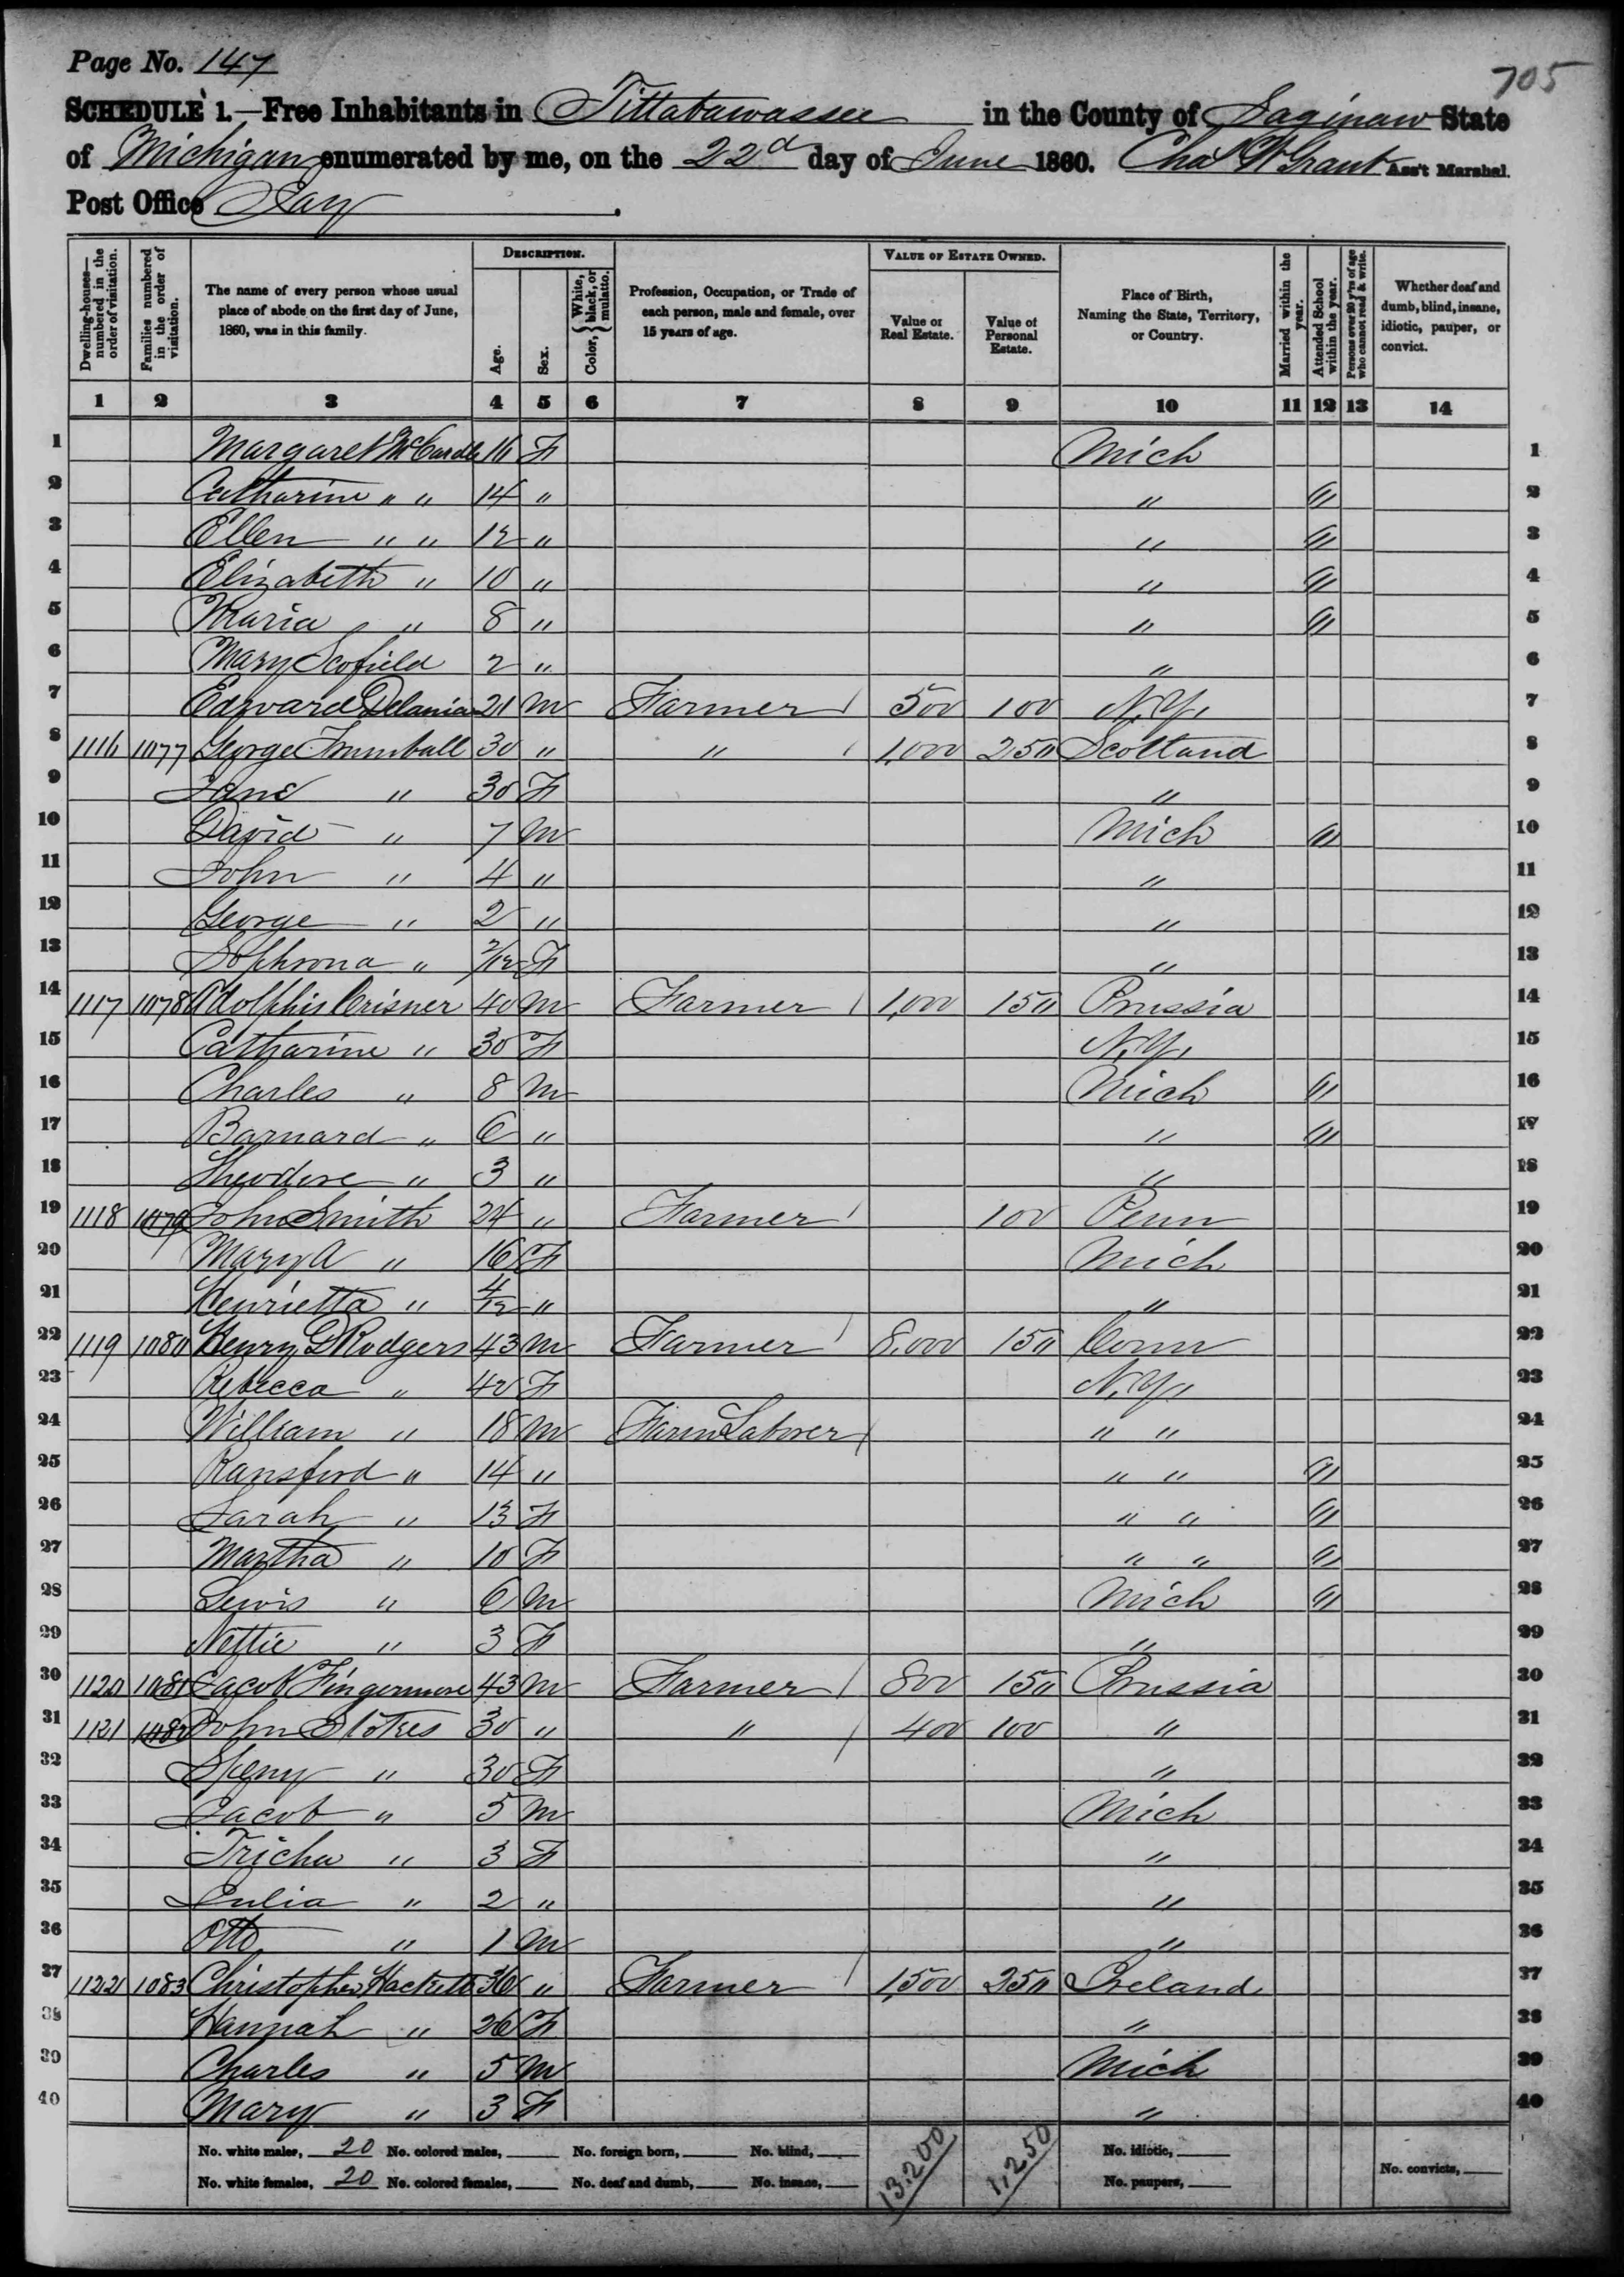 Page No. 147
705
SCHEDULE 1.—Free Inhabitants in Tittabawassee in the County of Saginaw State
of Michigan enumerated by me, on the 22d day of June 1860. Chas W Grant Ass't Marshal.
Post Office Jay.
Dwelling-houses—numbered in the order of visitation.
Families numbered in the order of visitation.
The name of every person whose usual place of abode on the first day of June, 1860, was in this family.
DESCRIPTION.
Age.
Sex.
Color, { White, black, or mulatto.
Profession, Occupation, or Trade of each person, male and female, over 15 years of age.
VALUE OF ESTATE OWNED.
Value of Real Estate.
Value of Personal Estate.
Place of Birth, Naming the State, Territory, or Country.
Married within the year.
Attended School within the year.
Persons over 20 y'rs of age who cannot read & write.
Whether deaf and dumb, blind, insane, idiotic, pauper, or convict.
1 2 3 4 5 6 7 8 9 10 11 12 13 14
1 Margaret McCardle 16 F Mich 1
2 Catharine " " 14 " " // 2
3 Ellen " " 12 " " // 3
4 Elizabeth " 10 " " // 4
5 Maria " 8 " " // 5
6 Mary Scofield 2 " " 6
7 Edward Delania 21 M Farmer / 500 100 N.Y. 7
8 1116 1077 George Trumball 30 " " / 1,000 250 Scotland 8
9 Jane " 30 F " 9
10 David " 7 M Mich // 10
11 John " 4 " " 11
12 George " 2 " " 12
13 Sophrona " 2/12 F " 13
14 1117 1078 Adolphis Crisner 40 M Farmer / 1,000 150 Prussia 14
15 Catharine " 30 F N.Y. 15
16 Charles " 8 M Mich // 16
17 Barnard " 6 " " // 17
18 Theodore " 3 " " 18
19 1118 1079 John Smith 24 " Farmer / 100 Penn 19
20 Mary A " 16 F Mich 20
21 Henrietta " 4/12 " " 21
22 1119 1080 Henry G Rodgers 43 M Farmer / 8,000 150 Conn 22
23 Rebecca " 40 F N.Y. 23
24 William " 18 M Farm Laborer / " " 24
25 Ransford " 14 " " " // 25
26 Sarah " 13 F " " // 26
27 Martha " 10 F " " // 27
28 Lewis " 6 M Mich // 28
29 Nettie " 3 F " 29
30 1120 1081 Jacob Fingermore 43 M Farmer / 800 150 Prussia 30
31 1121 1082 John Slokes 30 " " / 400 100 " 31
32 " 30 F " 32
33 Jacob " 5 M Mich 33
34 Tricha " 3 F " 34
35 Julia " 2 " " 35
36 Otto " 1 M " 36
37 1122 1083 Christopher Hackett 36 " Farmer / 1,500 250 Ireland 37
38 Hannah " 26 F " 38
39 Charles " 5 M Mich 39
40 Mary " 3 F " 40
No. white males, 20 No. colored males, No. foreign born, No. blind, 13.200 1,250 No. idiotic,
No. white females, 20 No. colored females, No. deaf and dumb, No. insane, No. paupers, No. convicts,